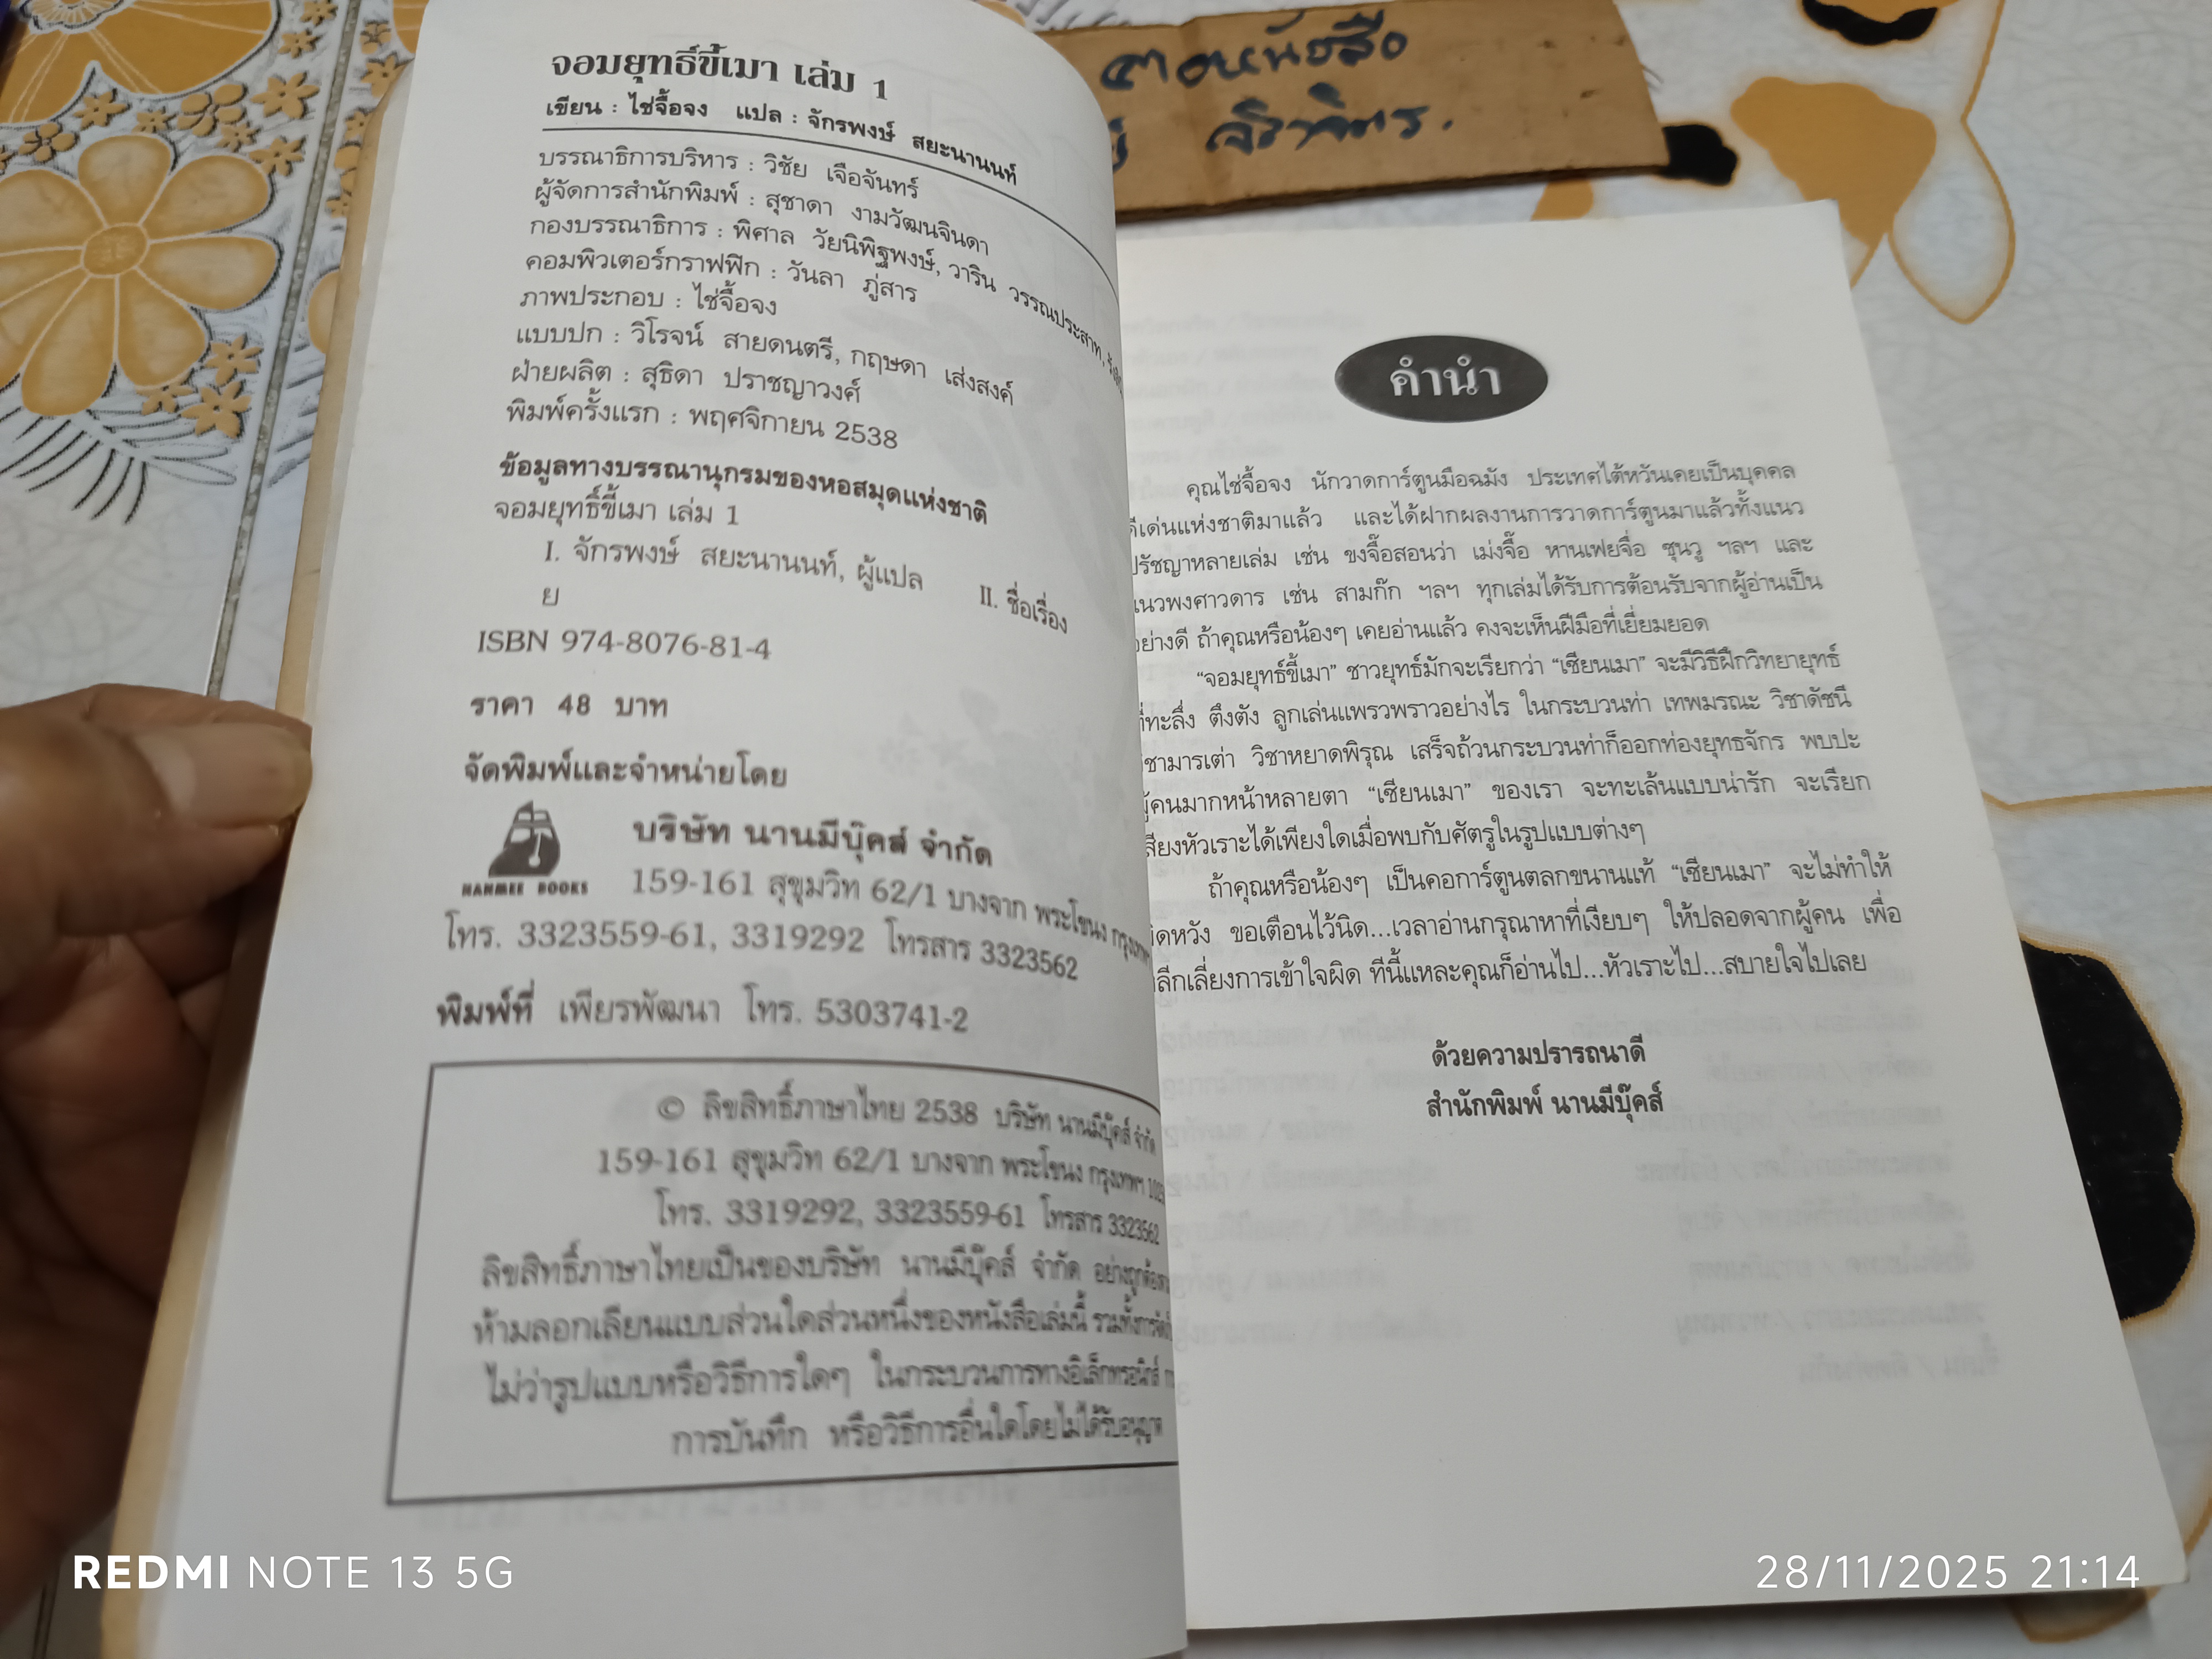 จอมยุทธ์ขี้เมา เล่ม 1
เขียน : ไช่จื้อจง แปล : จักรพงษ์ สยะนานนท์
บรรณาธิการบริหาร : วิชัย เจือจันทร์
ผู้จัดการสำนักพิมพ์ : สุชาดา งามวัฒนจินดา
กองบรรณาธิการ : พิศาล วัยนิพิฐพงษ์, วาริน วรรณประสาท,
คอมพิวเตอร์กราฟฟิก : วันลา ภู่สาร
ภาพประกอบ : ไช่จื้อจง
แบบปก : วิโรจน์ สายดนตรี, กฤษดา เส่งสงค์
ฝ่ายผลิต : สุธิดา ปราชญาวงศ์
พิมพ์ครั้งแรก : พฤศจิกายน 2538
ข้อมูลทางบรรณานุกรมของหอสมุดแห่งชาติ
จอมยุทธิ์ขี้เมา เล่ม 1
I. จักรพงษ์ สยะนานนท์, ผู้แปล II. ชื่อเรื่อง
ย
ISBN 974-8076-81-4
ราคา 48 บาท
จัดพิมพ์และจำหน่ายโดย
NANMEE BOOKS
บริษัท นานมีบุ๊คส์ จำกัด
159-161 สุขุมวิท 62/1 บางจาก พระโขนง กรุงเทพฯ
โทร. 3323559-61, 3319292 โทรสาร 3323562
พิมพ์ที่ เพียรพัฒนา โทร. 5303741-2
© ลิขสิทธิ์ภาษาไทย 2538 บริษัท นานมีบุ๊คส์ จำกัด
159-161 สุขุมวิท 62/1 บางจาก พระโขนง กรุงเทพฯ
โทร. 3319292, 3323559-61 โทรสาร 3323562
ลิขสิทธิ์ภาษาไทยเป็นของบริษัท นานมีบุ๊คส์ จำกัด
ห้ามลอกเลียนแบบส่วนใดส่วนหนึ่งของหนังสือเล่มนี้
ไม่ว่ารูปแบบหรือวิธีการใดๆ ในกระบวนการทางอิเล็กทรอนิกส์
การบันทึก หรือวิธีการอื่นใดโดยไม่ได้รับอนุญาต
คำนำ
คุณไช่จื้อจง นักวาดการ์ตูนมือฉมัง ประเทศไต้หวันเคยเป็นบุคคล
ดีเด่นแห่งชาติมาแล้ว และได้ฝากผลงานการวาดการ์ตูนมาแล้วทั้งแนว
ปรัชญาหลายเล่ม เช่น ขงจื๊อสอนว่า เม่งจื๊อ หานเฟยจื่อ ซุนวู ฯลฯ และ
แนวพงศาวดาร เช่น สามก๊ก ฯลฯ ทุกเล่มได้รับการต้อนรับจากผู้อ่านเป็น
อย่างดี ถ้าคุณหรือน้องๆ เคยอ่านแล้ว คงจะเห็นฝีมือที่เยี่ยมยอด
“จอมยุทธ์ขี้เมา” ชาวยุทธ์มักจะเรียกว่า “เซียนเมา” จะมีวิธีฝึกวิทยายุทธ์
ที่ทะลึ่ง ตึงตัง ลูกเล่นแพรวพราวอย่างไร ในกระบวนท่า เทพมรณะ วิชาดัชนี
วิชามารเต่า วิชาหยาดพิรุณ เสร็จถ้วนกระบวนท่าก็ออกท่องยุทธจักร พบปะ
ผู้คนมากหน้าหลายตา “เซียนเมา” ของเรา จะทะเล้นแบบน่ารัก จะเรียก
เสียงหัวเราะได้เพียงใดเมื่อพบกับศัตรูในรูปแบบต่างๆ
ถ้าคุณหรือน้องๆ เป็นคอการ์ตูนตลกขนานแท้ “เซียนเมา” จะไม่ทำให้
ผิดหวัง ขอเตือนไว้นิด...เวลาอ่านกรุณาหาที่เงียบๆ ให้ปลอดจากผู้คน เพื่อ
หลีกเลี่ยงการเข้าใจผิด ทีนี้แหละคุณก็อ่านไป...หัวเราะไป...สบายใจไปเลย
ด้วยความปรารถนาดี
สำนักพิมพ์ นานมีบุ๊คส์
REDMI NOTE 13 5G
28/11/2025 21:14